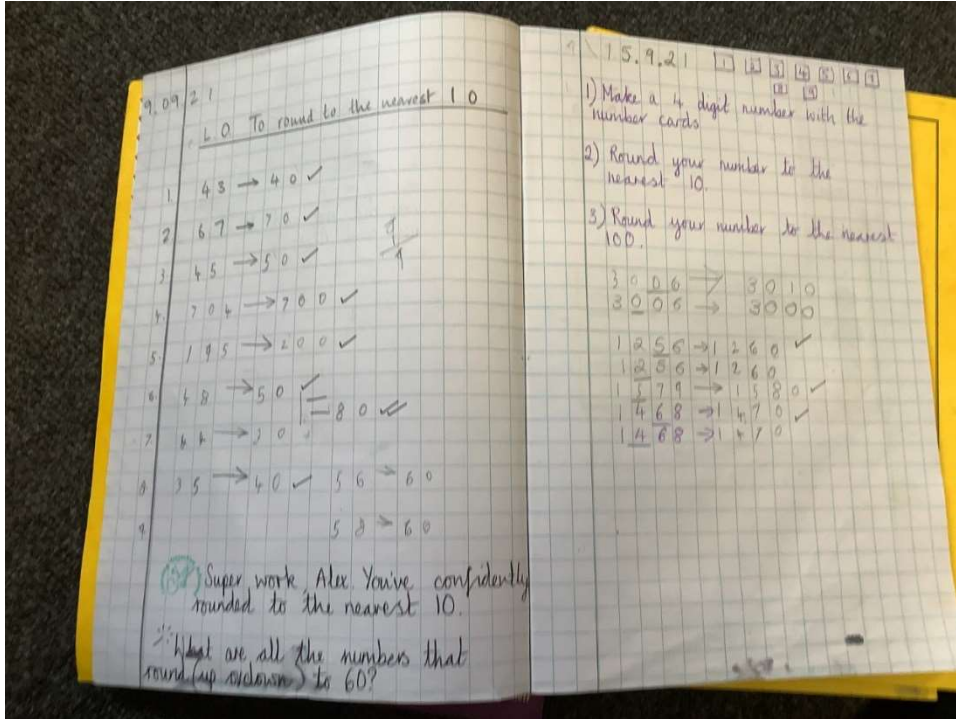 9.09.21
L O To round to the nearest 10
1. 43 → 40 ✓
2. 67 → 70 ✓
3. 45 → 50 ✓
4. 704 → 700 ✓
5. 195 → 200 ✓
6. 48 → 50 ✓
= 80 ✓
7.
8. 35 → 40 ✓ 56 → 60
9. 58 → 60
Super work Alex. You've confidently
rounded to the nearest 10.
What are all the numbers that
round (up or down) to 60?
15.9.21 1 2 3 4 5 6 7
8 9
1) Make a 4 digit number with the
number cards
2) Round your number to the
nearest 10.
3) Round your number to the nearest
100.
3006 → 3010
3006 → 3000
1256 → 1260 ✓
1256 → 1260
1579 → 1580 ✓
1468 → 1470 ✓
1468 → 1470